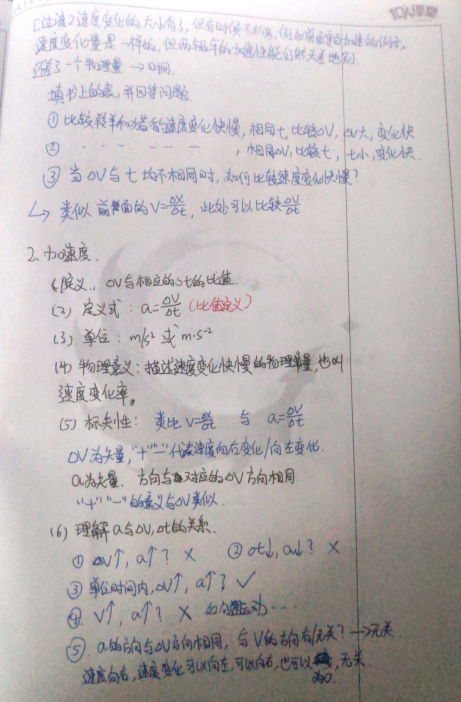 速度变化的大小有了，但有时候不太
速度变化量是一样的，但两辆车的加速性能仍然天差地别
还差了一个物理量→时间.
填书上的表，并回答问题
① 比较羚羊和猎豹速度变化快慢，相同t，比较ΔV，ΔV大，变化快
② - - - - - ，相同ΔV，比较t，t小，变化快.
③ 当ΔV与t均不相同时，如何比较速度变化快慢？
↳ 类似前面的V=ΔX/Δt，此处可以比较ΔV/Δt
2. 加速度.
(1) 定义：ΔV与相应的Δt的比值.
(2) 定义式：a=ΔV/Δt (比值定义)
(3) 单位：m/s² 或 m·s⁻²
(4) 物理意义：描述速度变化快慢的物理量，也叫
速度变化率。
(5) 标矢性： 类比V=Δx/Δt 与 a=ΔV/Δt
ΔV为矢量，"+""-"代表速度向右变化/向左变化.
a为矢量. 方向与对应的ΔV方向相同
"+""-"的意义与ΔV类似.
(6) 理解a与ΔV, Δt的关系.
① ΔV↑, a↑？ × ② Δt↓, a↓？ ×
③ 单位时间内, ΔV↑, a↑？ ✓
④ V↑, a↑？ × 匀 运动…
⑤ a的方向与ΔV方向相同，与V的方向有/无关？→无关
速度向右，速度变化可以向左，可以向右，也可以为0，无关.